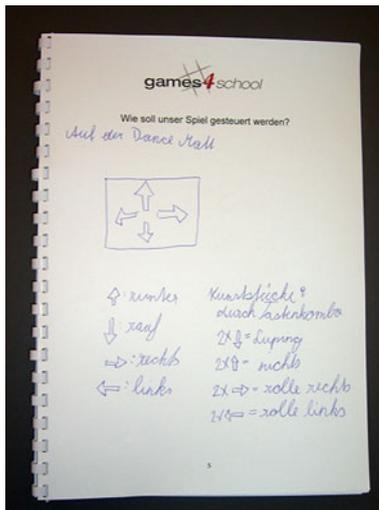 games4school
Wie soll unser Spiel gesteuert werden?
Auf der Dance Matt
⇧: runter
⇩: rauf
⇨: rechts
⇦: links
Kunststücke
durch Tastenkombo
2x⇩= Luping
2x⇧= nichts
2x ⇨= rolle rechts
2x⇦= rolle links
5